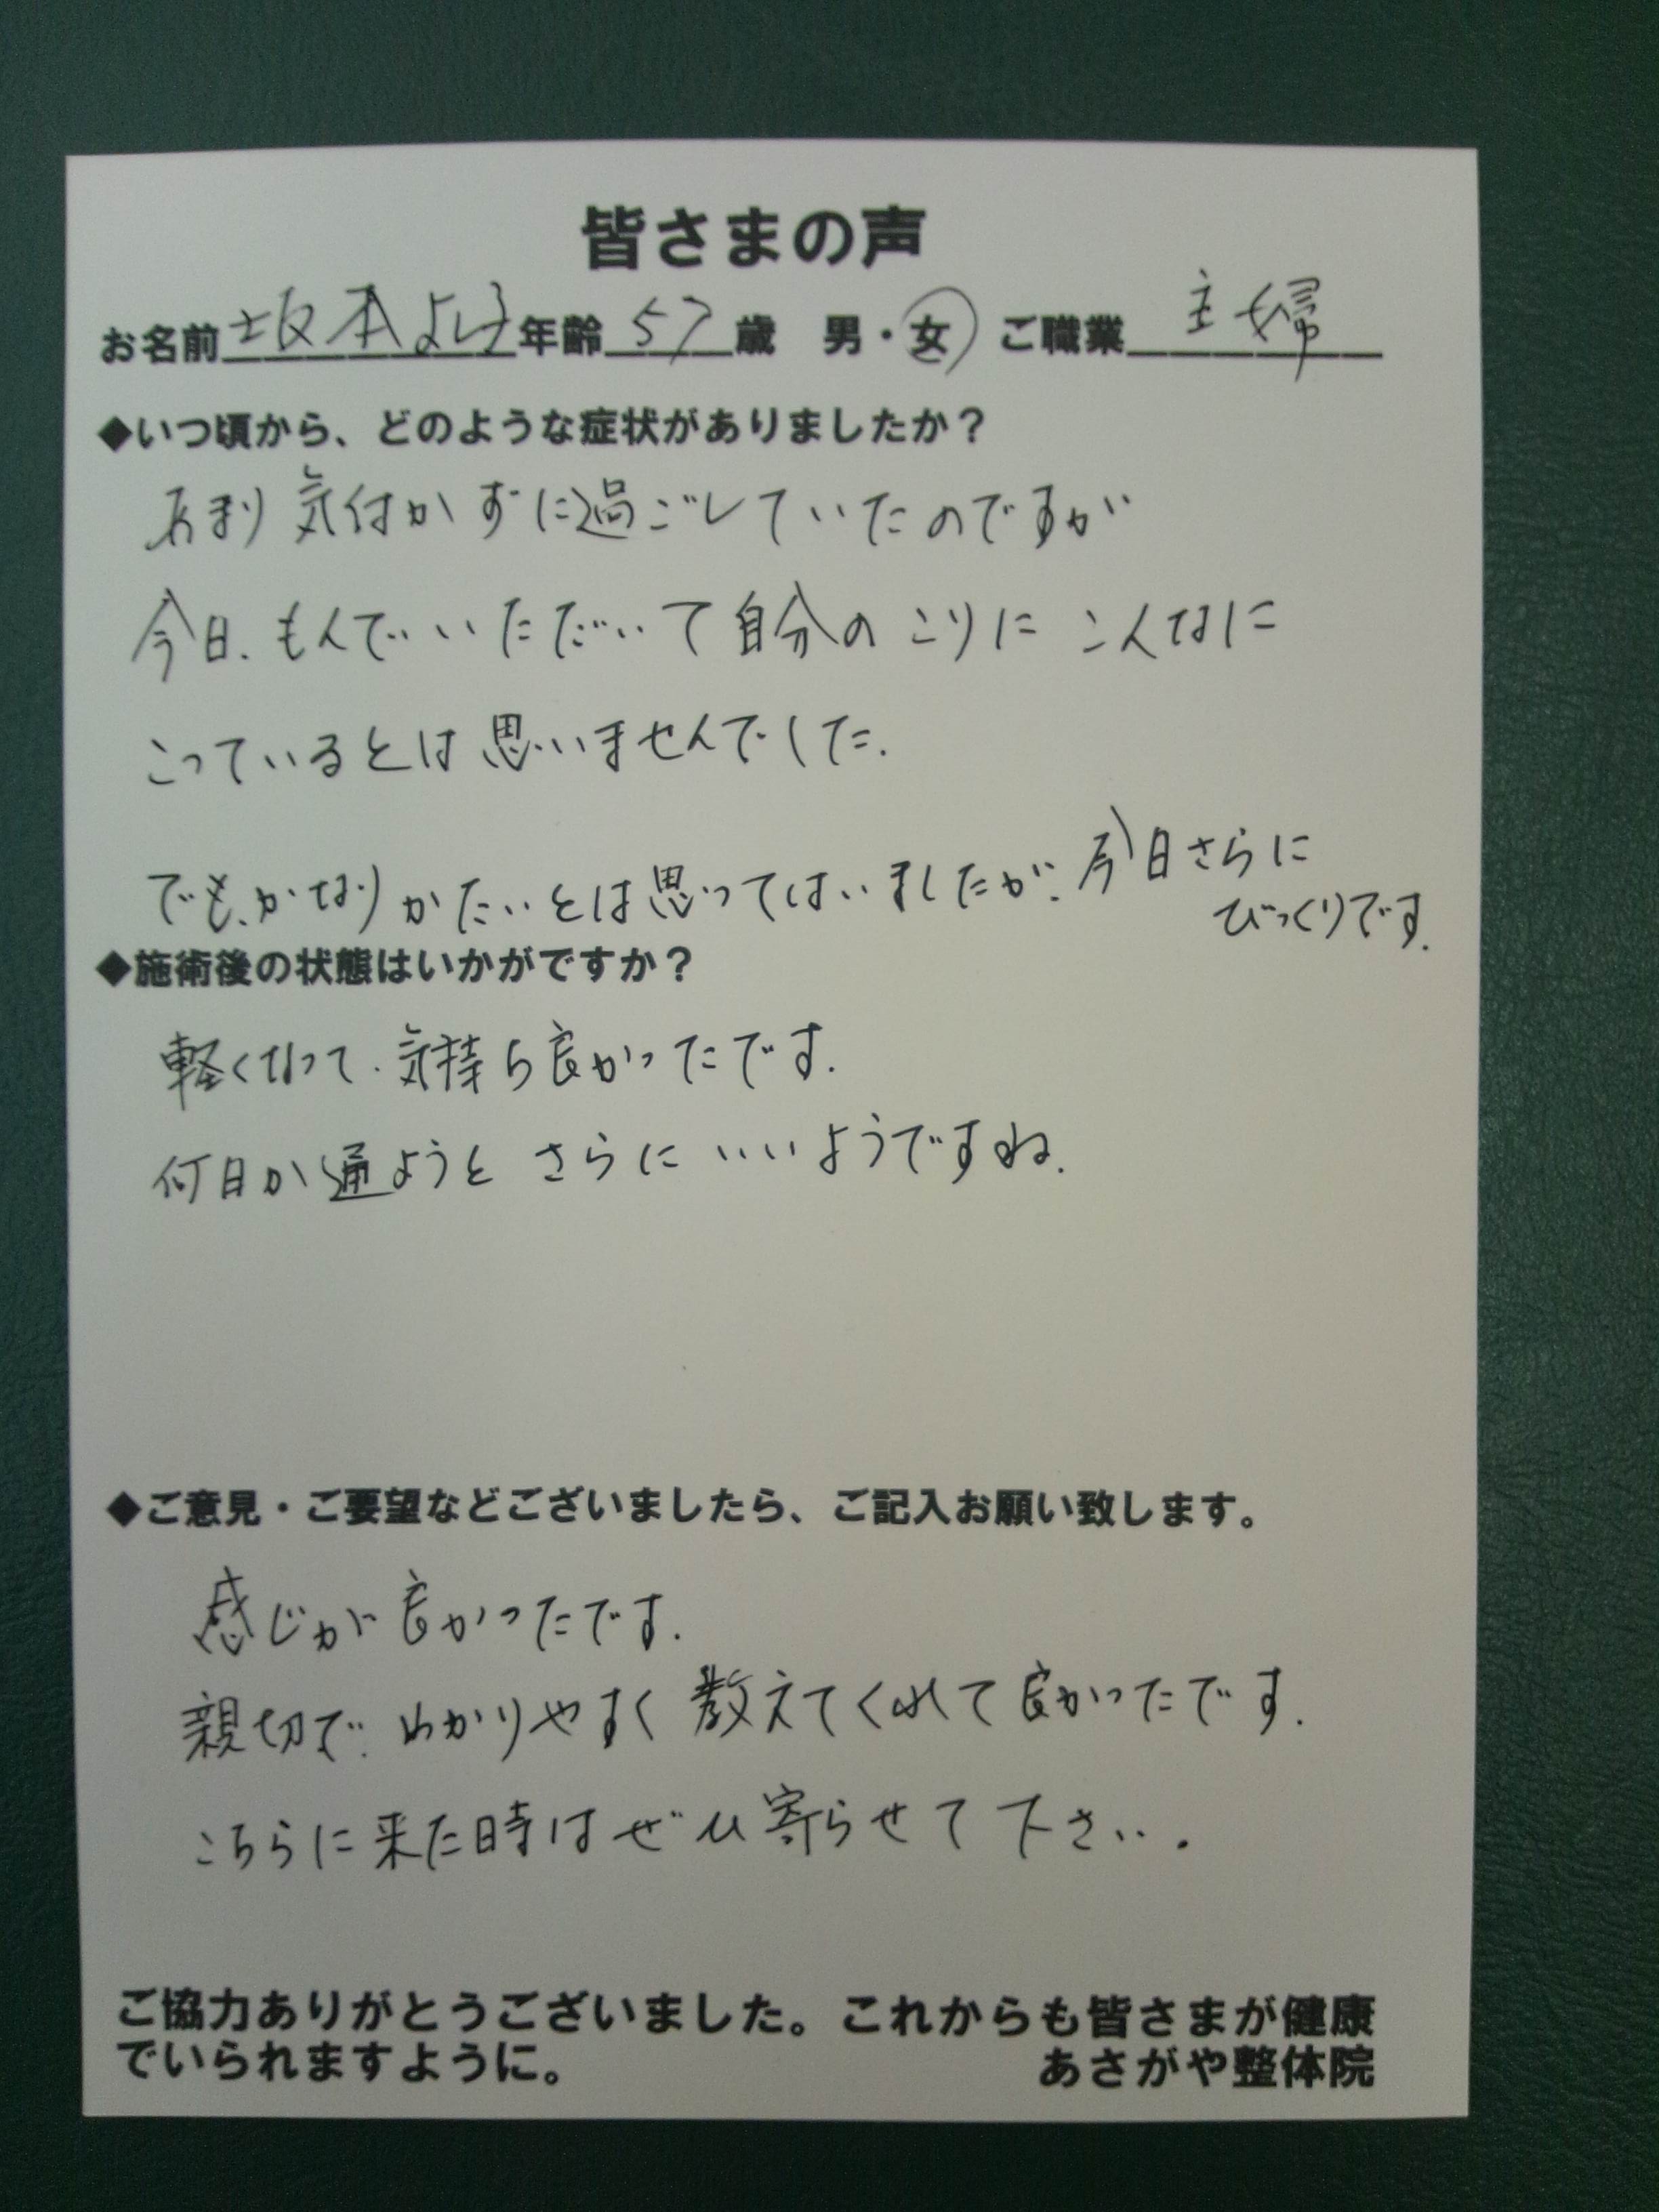 皆さまの声
お名前 坂本よし子 年齢 57 歳 男・女 ご職業 主婦
◆いつ頃から、どのような症状がありましたか？
あまり気付かずに過ごしていたのですが
今日、もんでいただいて自分のこりに こんなに
こっているとは思いませんでした.
でも、かなりかたいとは思ってはいましたが、今日さらに
びっくりです.
◆施術後の状態はいかがですか？
軽くなって、気持ち良かったです.
何日か通ようと さらに いいようですね.
◆ご意見・ご要望などございましたら、ご記入お願い致します。
感じが良かったです.
親切で、わかりやすく 教えてくれて良かったです.
こちらに来た時はぜひ寄らせて下さい.
ご協力ありがとうございました。これからも皆さまが健康
でいられますように。 あさがや整体院